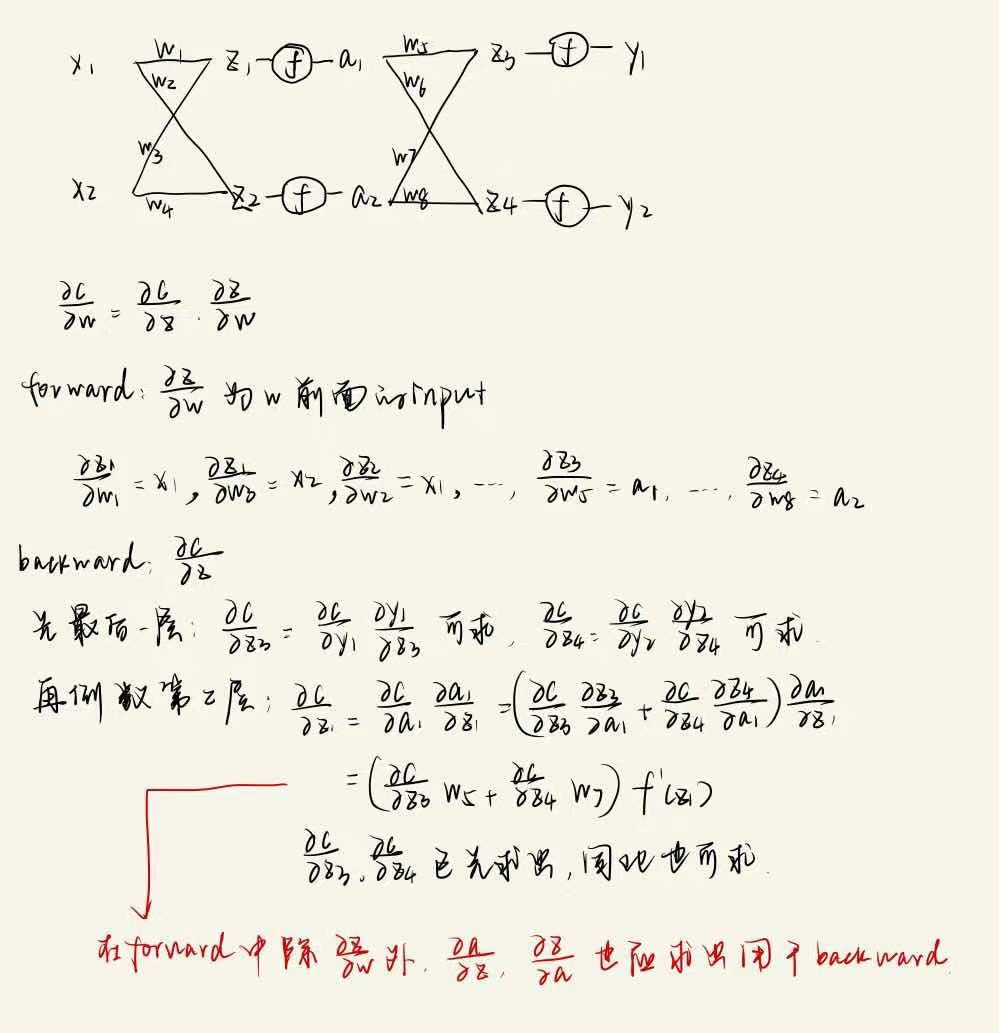 x₁ w₁ z₁ f a₁ w₅ z₃ f y₁
w₂ w₆
w₃ w₇
x₂ w₄ z₂ f a₂ w₈ z₄ f y₂
∂C/∂w = ∂C/∂z · ∂z/∂w
forward: ∂z/∂w 为 w 前面的input
∂z₁/∂w₁ = x₁, ∂z₁/∂w₃ = x₂, ∂z₂/∂w₂ = x₁, ..., ∂z₃/∂w₅ = a₁, ..., ∂z₄/∂w₈ = a₂
backward: ∂C/∂z
先最后一层: ∂C/∂z₃ = ∂C/∂y₁ ∂y₁/∂z₃ 可求, ∂C/∂z₄ = ∂C/∂y₂ ∂y₂/∂z₄ 可求.
再倒数第二层: ∂C/∂z₁ = ∂C/∂a₁ ∂a₁/∂z₁ = (∂C/∂z₃ ∂z₃/∂a₁ + ∂C/∂z₄ ∂z₄/∂a₁) ∂a₁/∂z₁
= (∂C/∂z₃ w₅ + ∂C/∂z₄ w₇) f'(z₁)
∂C/∂z₃、∂C/∂z₄ 已先求出, 因此也可求.
在forward中除 ∂z/∂w 外, ∂a/∂z, ∂z/∂a 也应求出用于backward